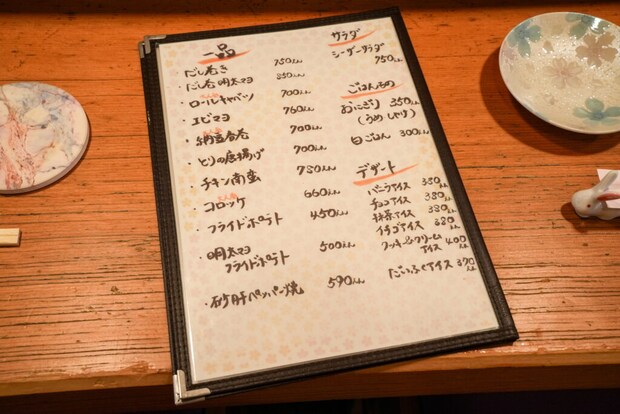 一品
・だし巻き 750込
・だし巻 明太マヨ 850込
・ロールキャベツ 700込
・エビマヨ 760込
・納豆春巻 700込
・とりの唐揚げ 700込
・チキン南蛮 780込
・コロッケ 660込
・フライドポテト 450込
・明太マヨ
フライドポテト 500込
・砂肝ペッパー焼 590込
サラダ
シーザーサラダ
750込
ごはんもの
おにぎり 350込
(うめ しゃけ)
白ごはん 300込
デザート
バニラアイス 350込
チョコアイス 380込
抹茶アイス 380込
イチゴアイス 380込
クッキー&クリーム
アイス 400込
だいふくアイス 390込